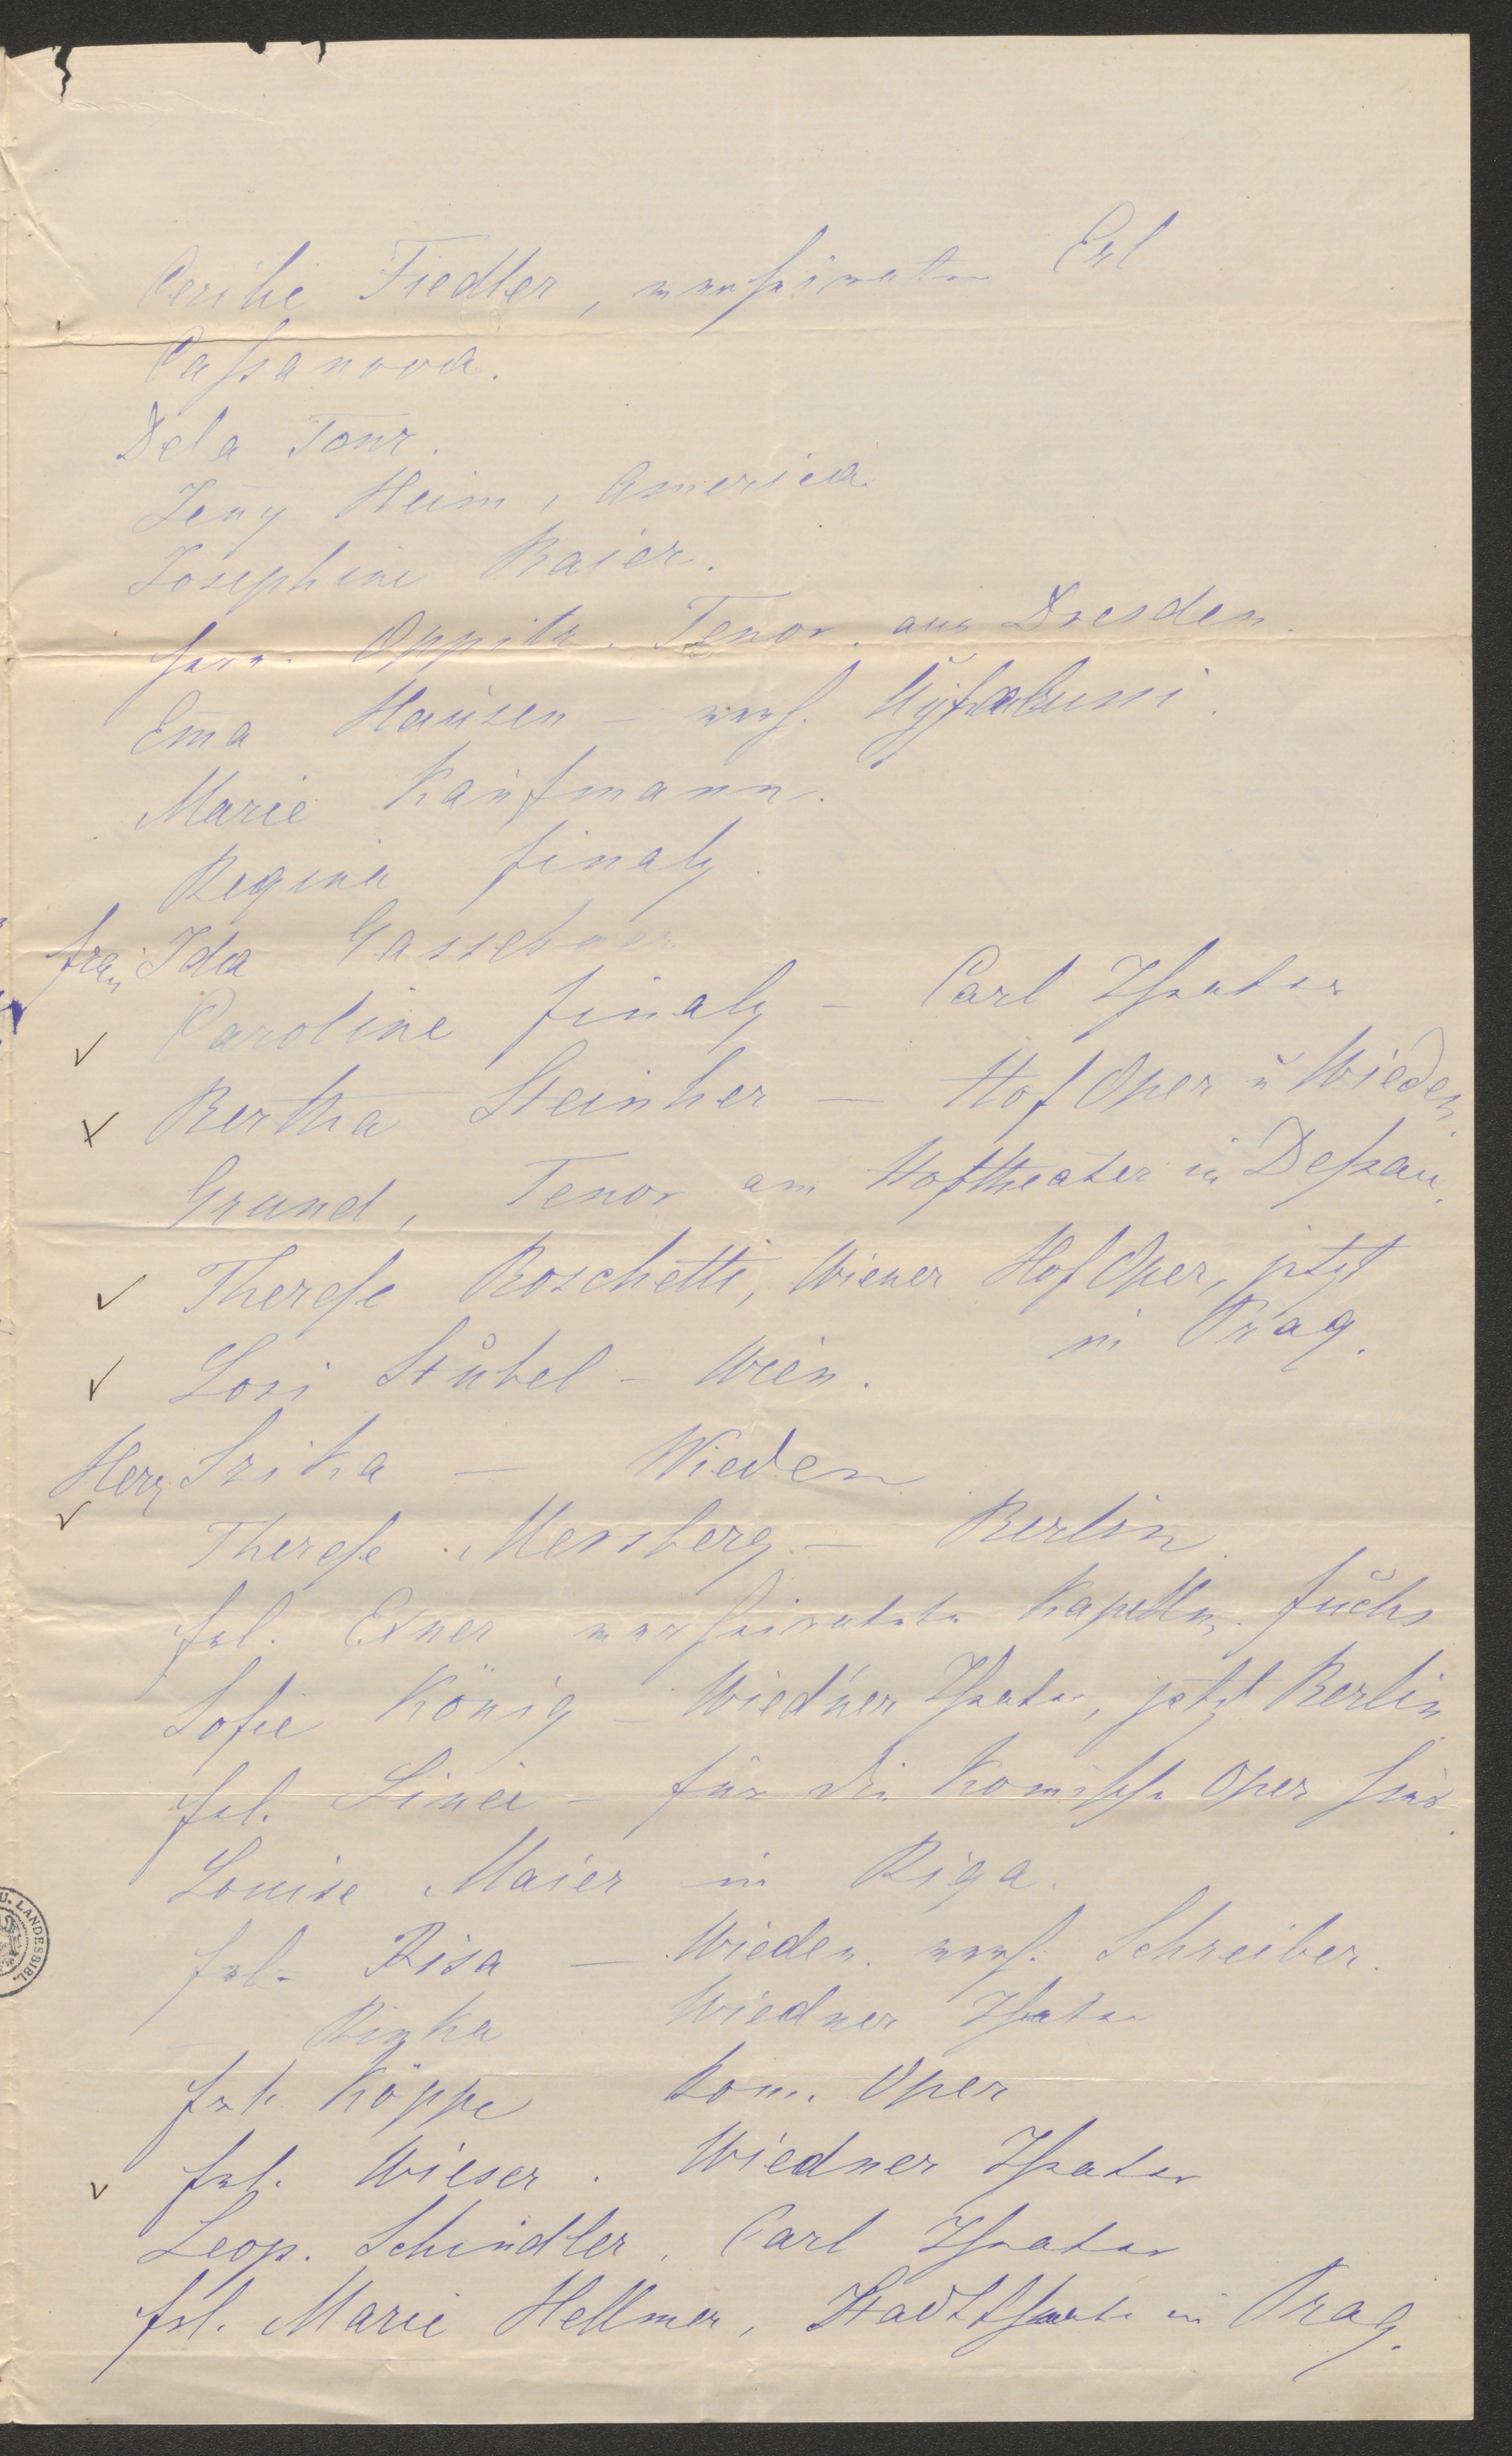 Cecilie Fiedler, verheiratete Erl
Caßanova.
Dela Tour.
Jen̄y Heim, America
Josephine Baier.
Herr Oppitz. Tenor. aus Dresden.
Em̄a Hauser – verh.
Marie Kaufmann.
Regina Finaly
Frau Ida
✓ Caroline Finaly – Carl Theater
✓ Bertha Steinher – Hof Oper u Wieden
Grund, Tenor am Hoftheater in Deßau.
✓ Therese Boschetti, Wiener Hof Oper, jetzt
in Prag.
✓ Lori Stubel – Wien.
Herr Szika – Wieden
✓ Therese Mersberg – Berlin
Frl. Exner verheiratete Kapellm. Fuchs
Sofie König – Wiedner Theater, jetzt Berlin
Frl. – für die Komische Oper hier.
Louise Maier in Riga.
Frl. Risa – Wieden. verh. Schreiber.
Wiedner Theater
Frl. Köppe Kom. Oper
✓ Frl. Wieser. Wiedner Theater
Leop. Schindler. Carl Theater
Frl. Marie Hellmer, Stadttheater in Prag.
U. LANDESBIBL.